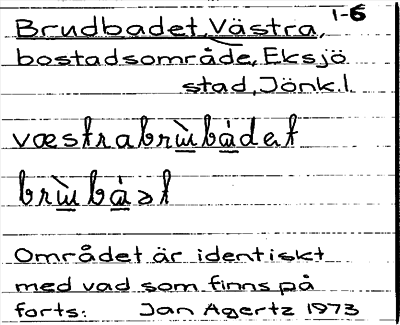 1-6
Brudbadet, Västra,
bostadsområde, Eksjö
stad, Jönk.l.
væstrabrɯ̀bȧdet
brɯ̀bȧət
Området är identiskt
med vad som finns på
forts: Jan Agertz 1973